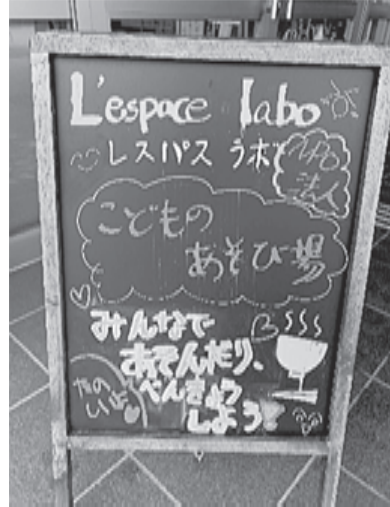 L'espace labo
レスパス ラボ
NPO
法人
こどもの
あそび場
みんなで
あそんだり、
べんきょう
しよう!
たの
しいよ